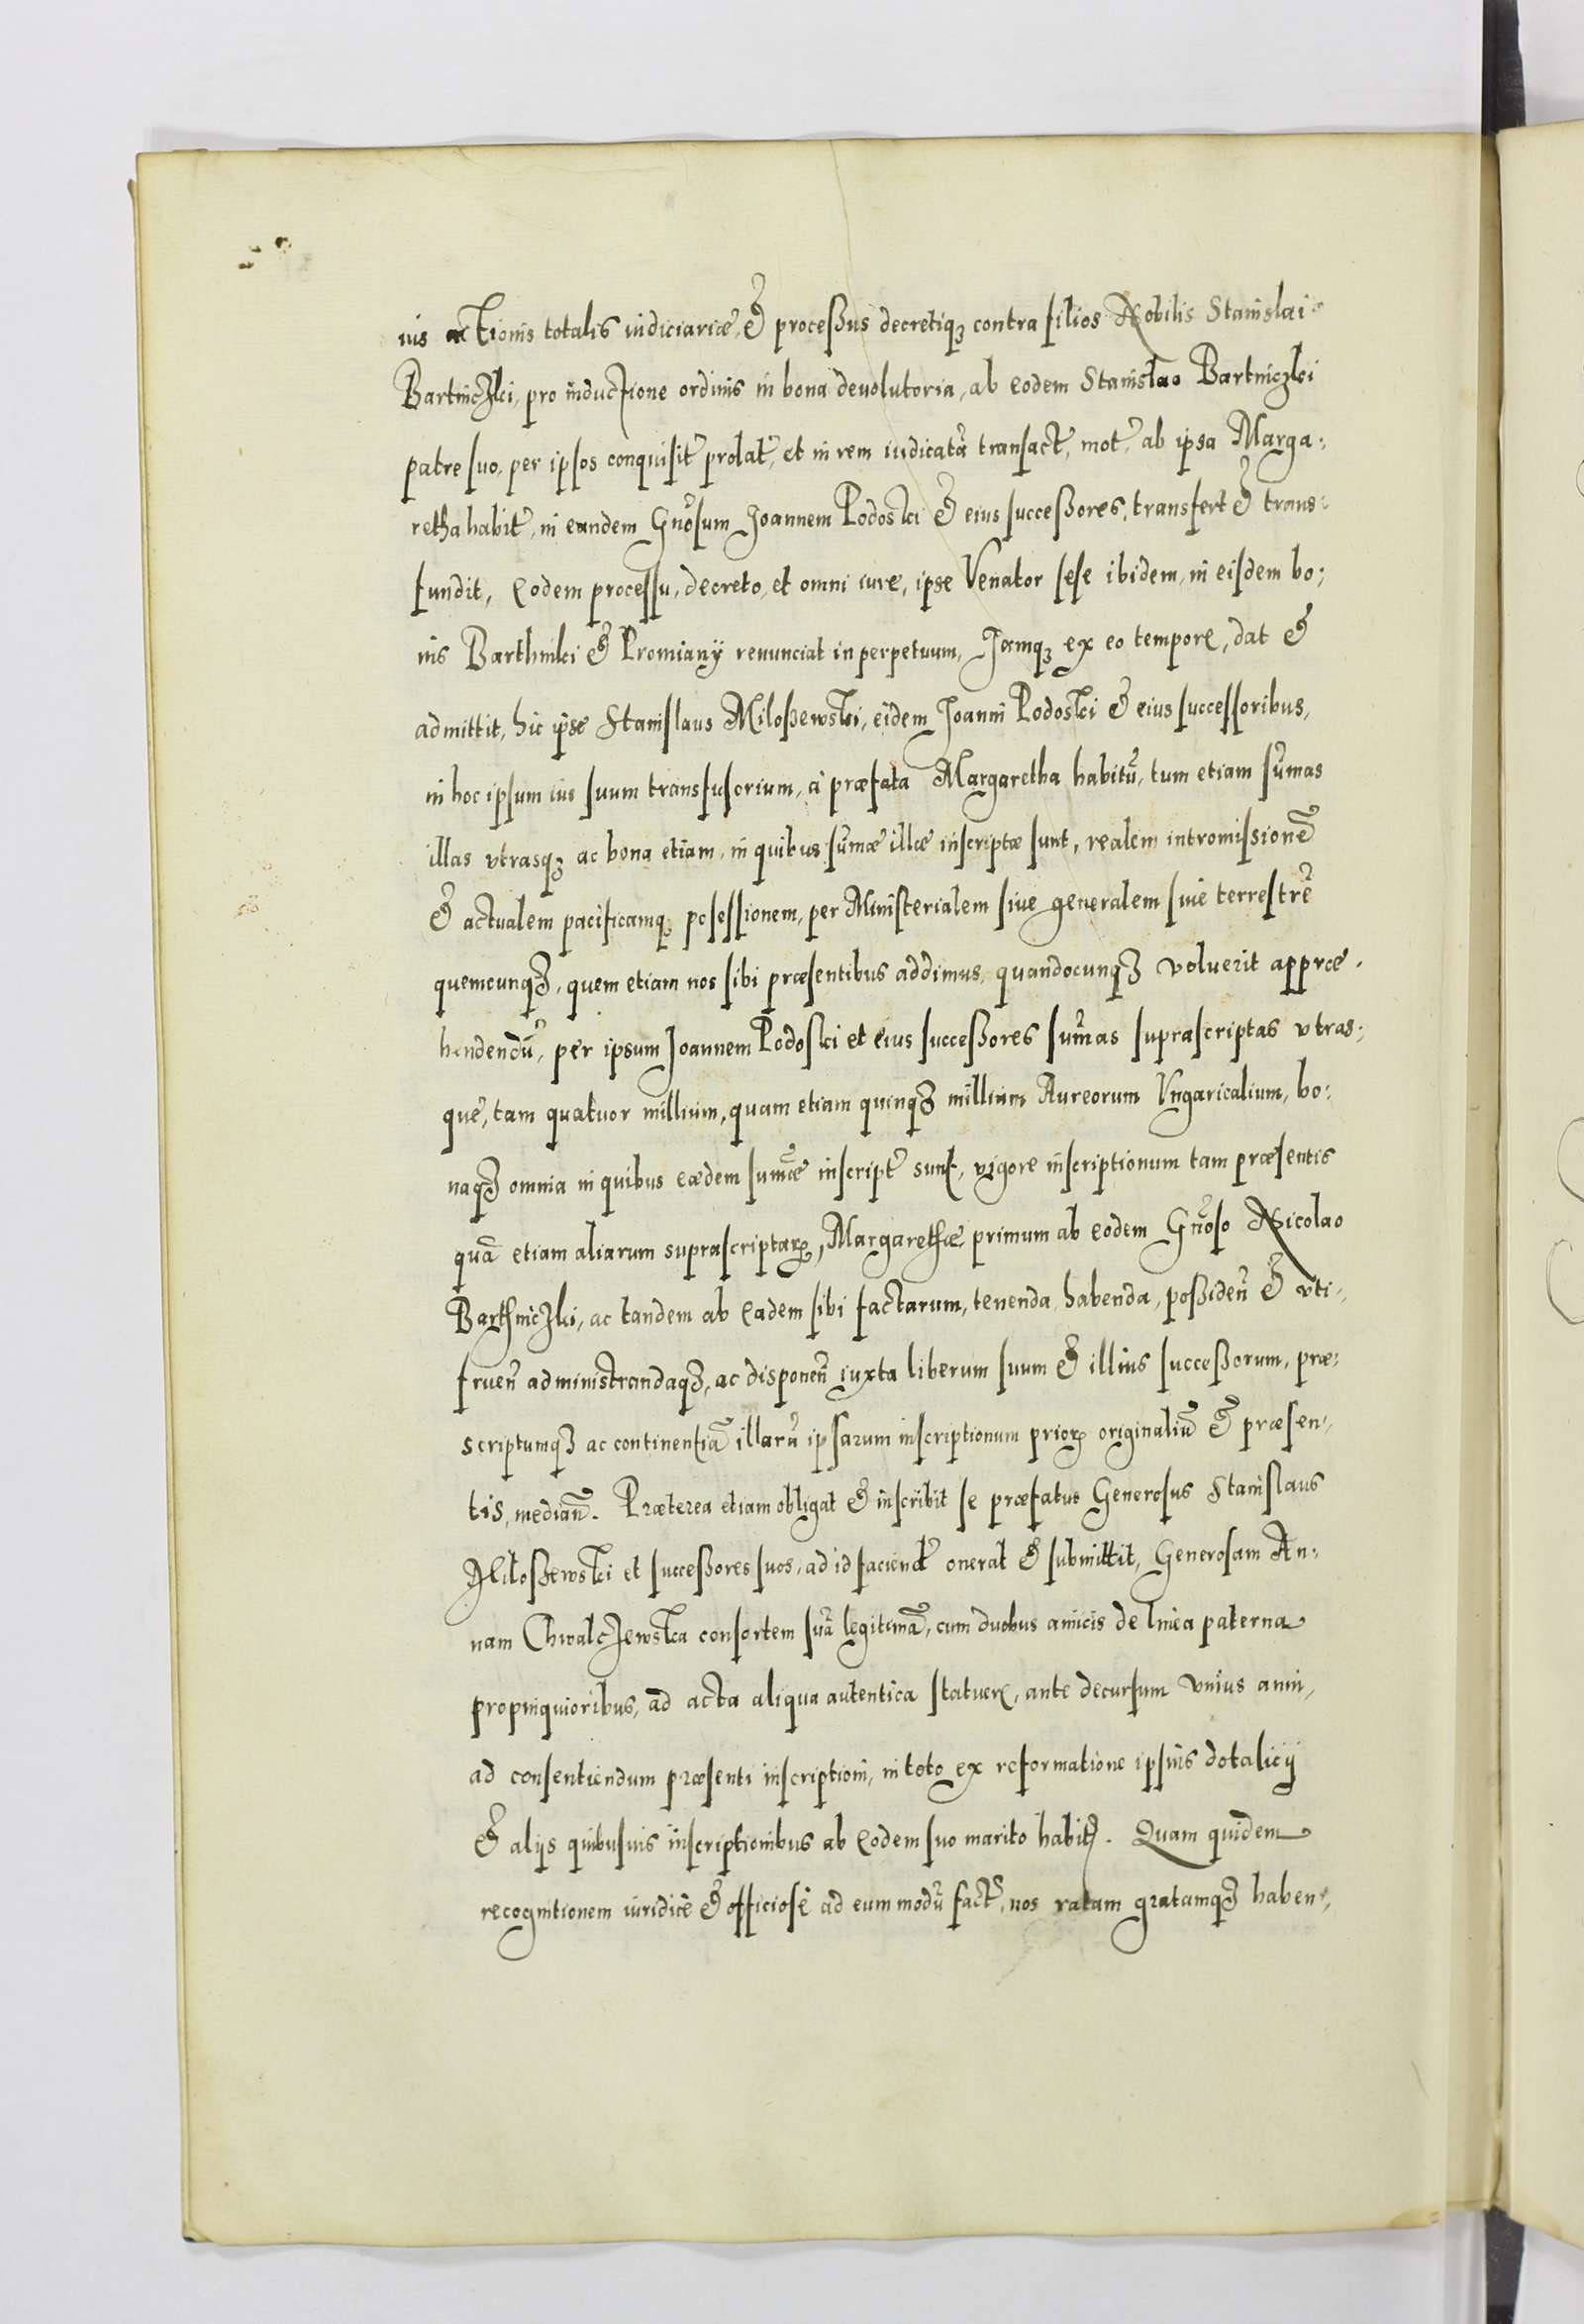 ius actionis totalis iudiciariæ, & processus decretiq₃ contra filios Nobilis Stanislai
Bartniczki, pro inductione ordinis in bona deuolutoria, ab eodem Stanislao Bartniczki
patre suo, per ipsos conquisit̃ prolat̃, et in rem iudicatã transact̃, mot̃, ab ipsa Marga:
retha habit̃, in eandem Gnõsum Joannem Podoski & eius successores, transfert & trans:
fundit, Eodem processu, decreto, et omni iure, ipse Venator sese ibidem, in eisdem bo:
nis Barthniki & Promiany renunciat in perpetuum, Jamq₃ ex eo tempore, dat &
admittit, hic ipse Stanislaus Miloszewski, eidem Joanni Podoski & eius successoribus,
in hoc ipsum ius suum transfusorium, à præfata Margaretha habitũ, tum etiam sum̃as
illas vtrasq₃ ac bona etiam, in quibus sum̃æ illæ inscriptæ sunt, realem intromissionẽ
& actualem pacificamq₃ posessionem, per Ministerialem siue generalem siue terrestrẽ
quemcunq₃, quem etiam nos sibi præsentibus addimus, quandocunq₃ voluerit appræ.
hendendũ, per ipsum Joannem Podoski et eius successores sum̃as suprascriptas vtras:
que, tam quatuor millium, quam etiam quinq₃ millium Aureorum Vngaricalium, bo:
naq₃ omnia in quibus eædem sum̃æ inscript̃ sunt, vigore inscriptionum tam præsentis
quã etiam aliarum suprascriptarꝝ, Margarethæ primum ab eodem Gnõso Nicolao
Barthniczki, ac tandem ab Eadem sibi factarum, tenenda, habenda, possideñ & vti,
frueñ administrandaq₃, ac disponeñ iuxta liberum suum & illius successorum, præ:
scriptumq₃ ac continentiã illarũ ipsarum inscriptionum priorꝝ originaliũ & præsen:
tis, mediañ. Præterea etiam obligat & inscribit se præfatus Generosus Stanislaus
Miloszewski et successores suos, ad id faciend̃ onerat & submittit, Generosam An:
nam Chwalczewska consortem suã legitimã, cum duobus amicis de linea paterna
propinquioribus, ad acta aliqua autentica statuere, ante decursum vnius anni,
ad consentiendum præsenti inscriptioni, in toto ex reformatione ipsius dotalicij
& alijs quibusuis inscriptionibus ab Eodem suo marito habit̃. Quam quidem
recognitionem iuridicè & officiosè ad eum modũ fact̃, nos ratam gratamq₃ haben,